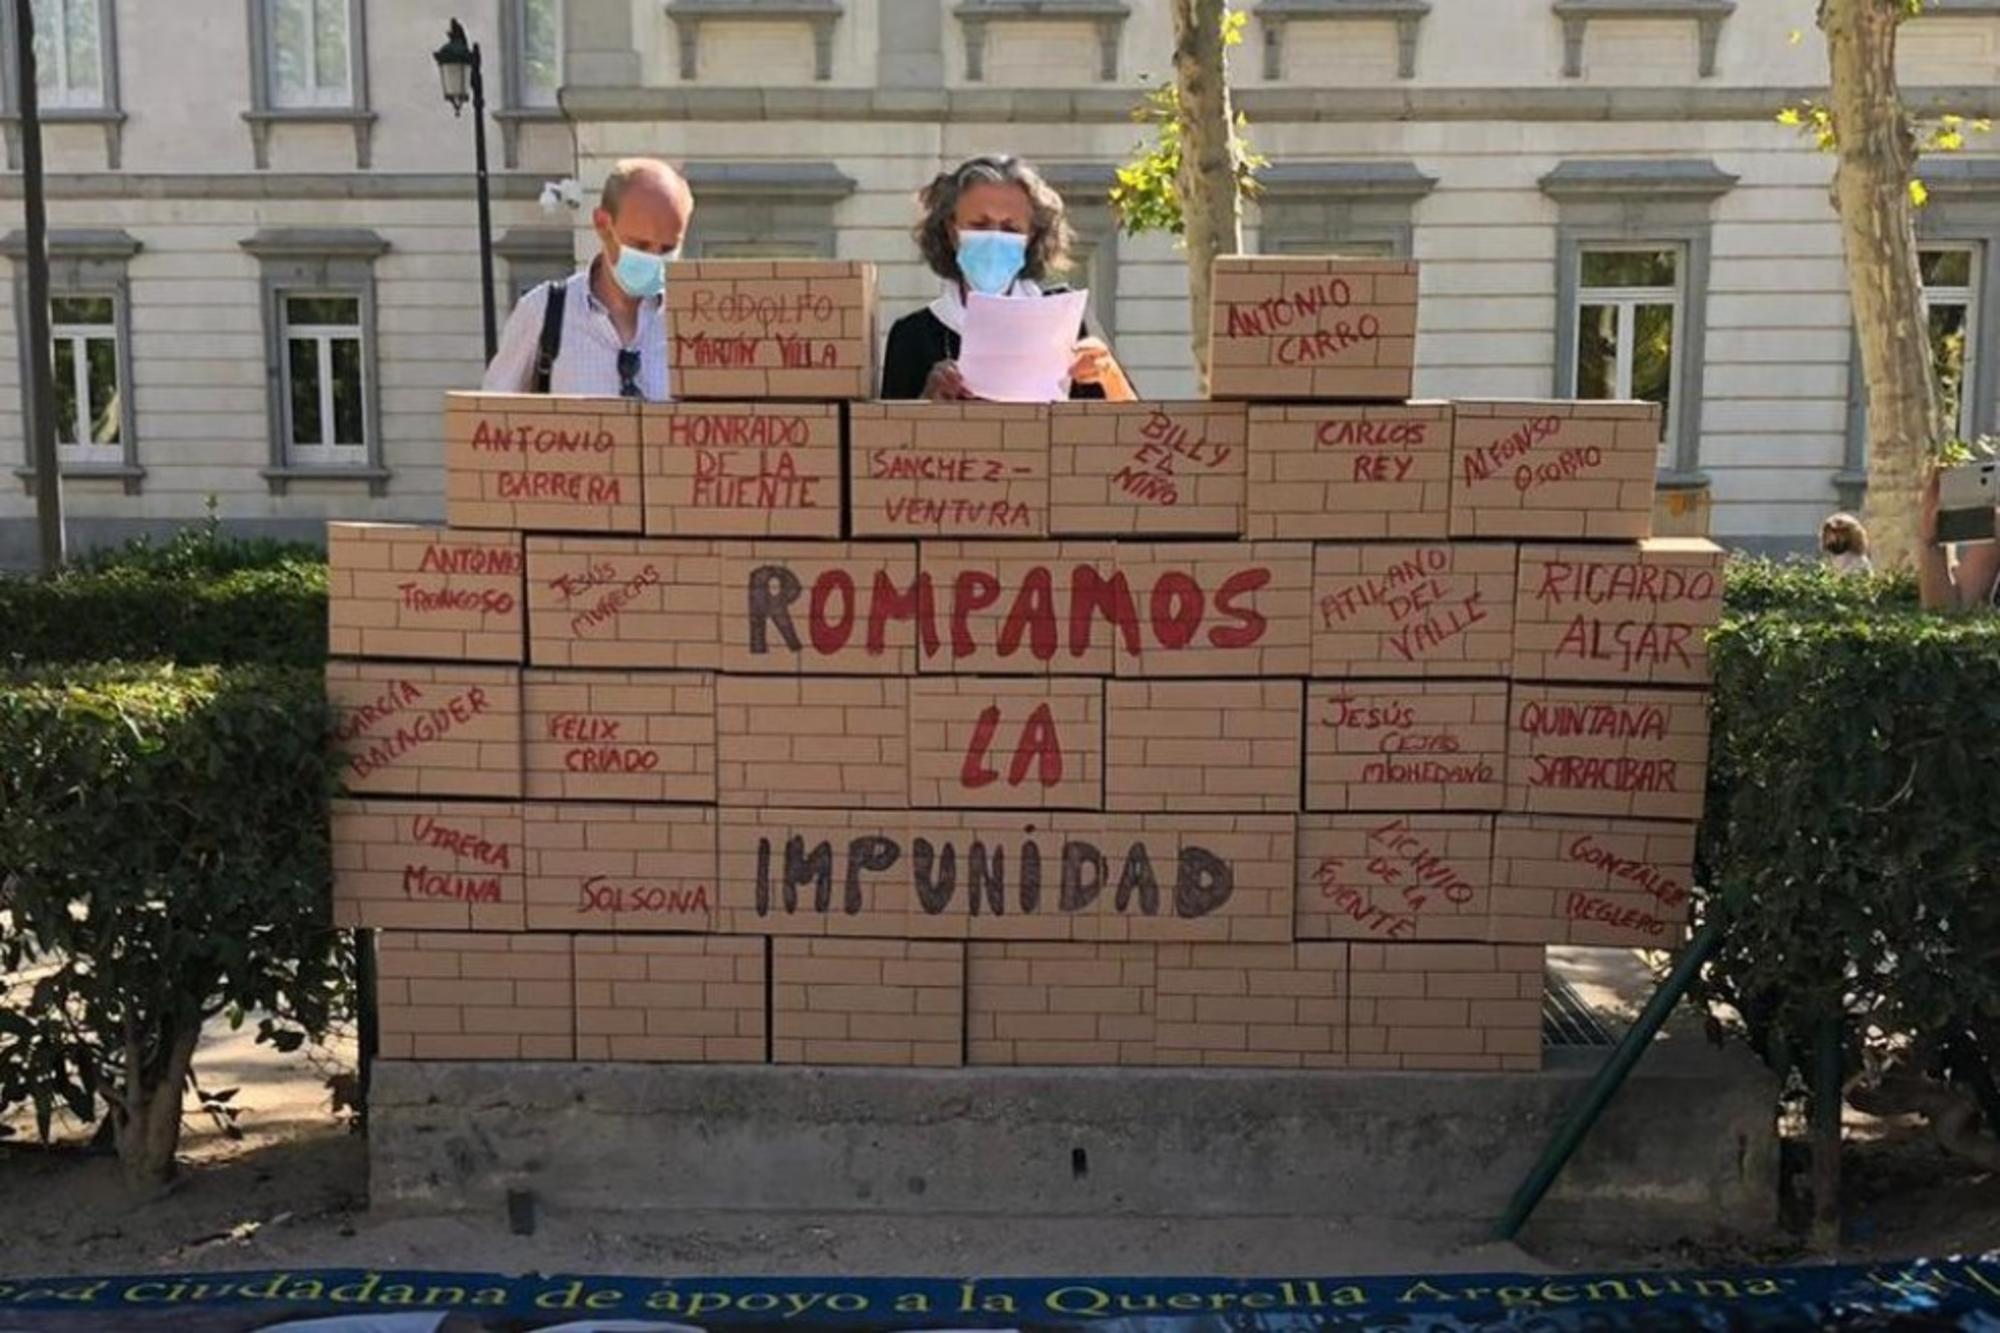 RODOLFO
MARTÍN VILLA
ANTONIO
CARRO
ANTONIO
BARRERA
HONRADO
DE LA
FUENTE
SÁNCHEZ-
VENTURA
BILLY
EL
NIÑO
CARLOS
REY
ALFONSO
OSORIO
ANTONIO
TRONCOSO
JESÚS
MUÑECAS
ROMPAMOS
ATILANO
DEL
VALLE
RICARDO
ALGAR
GARCÍA
BALAGUER
FÉLIX
CRIADO
LA
JESÚS
CEJAS
MOHEDANO
QUINTANA
SARACIBAR
UTRERA
MOLINA
SOLSONA
IMPUNIDAD
LICINIO
DE LA
FUENTE
GONZÁLEZ
REGLERO
Red ciudadana de apoyo a la Querella Argentina